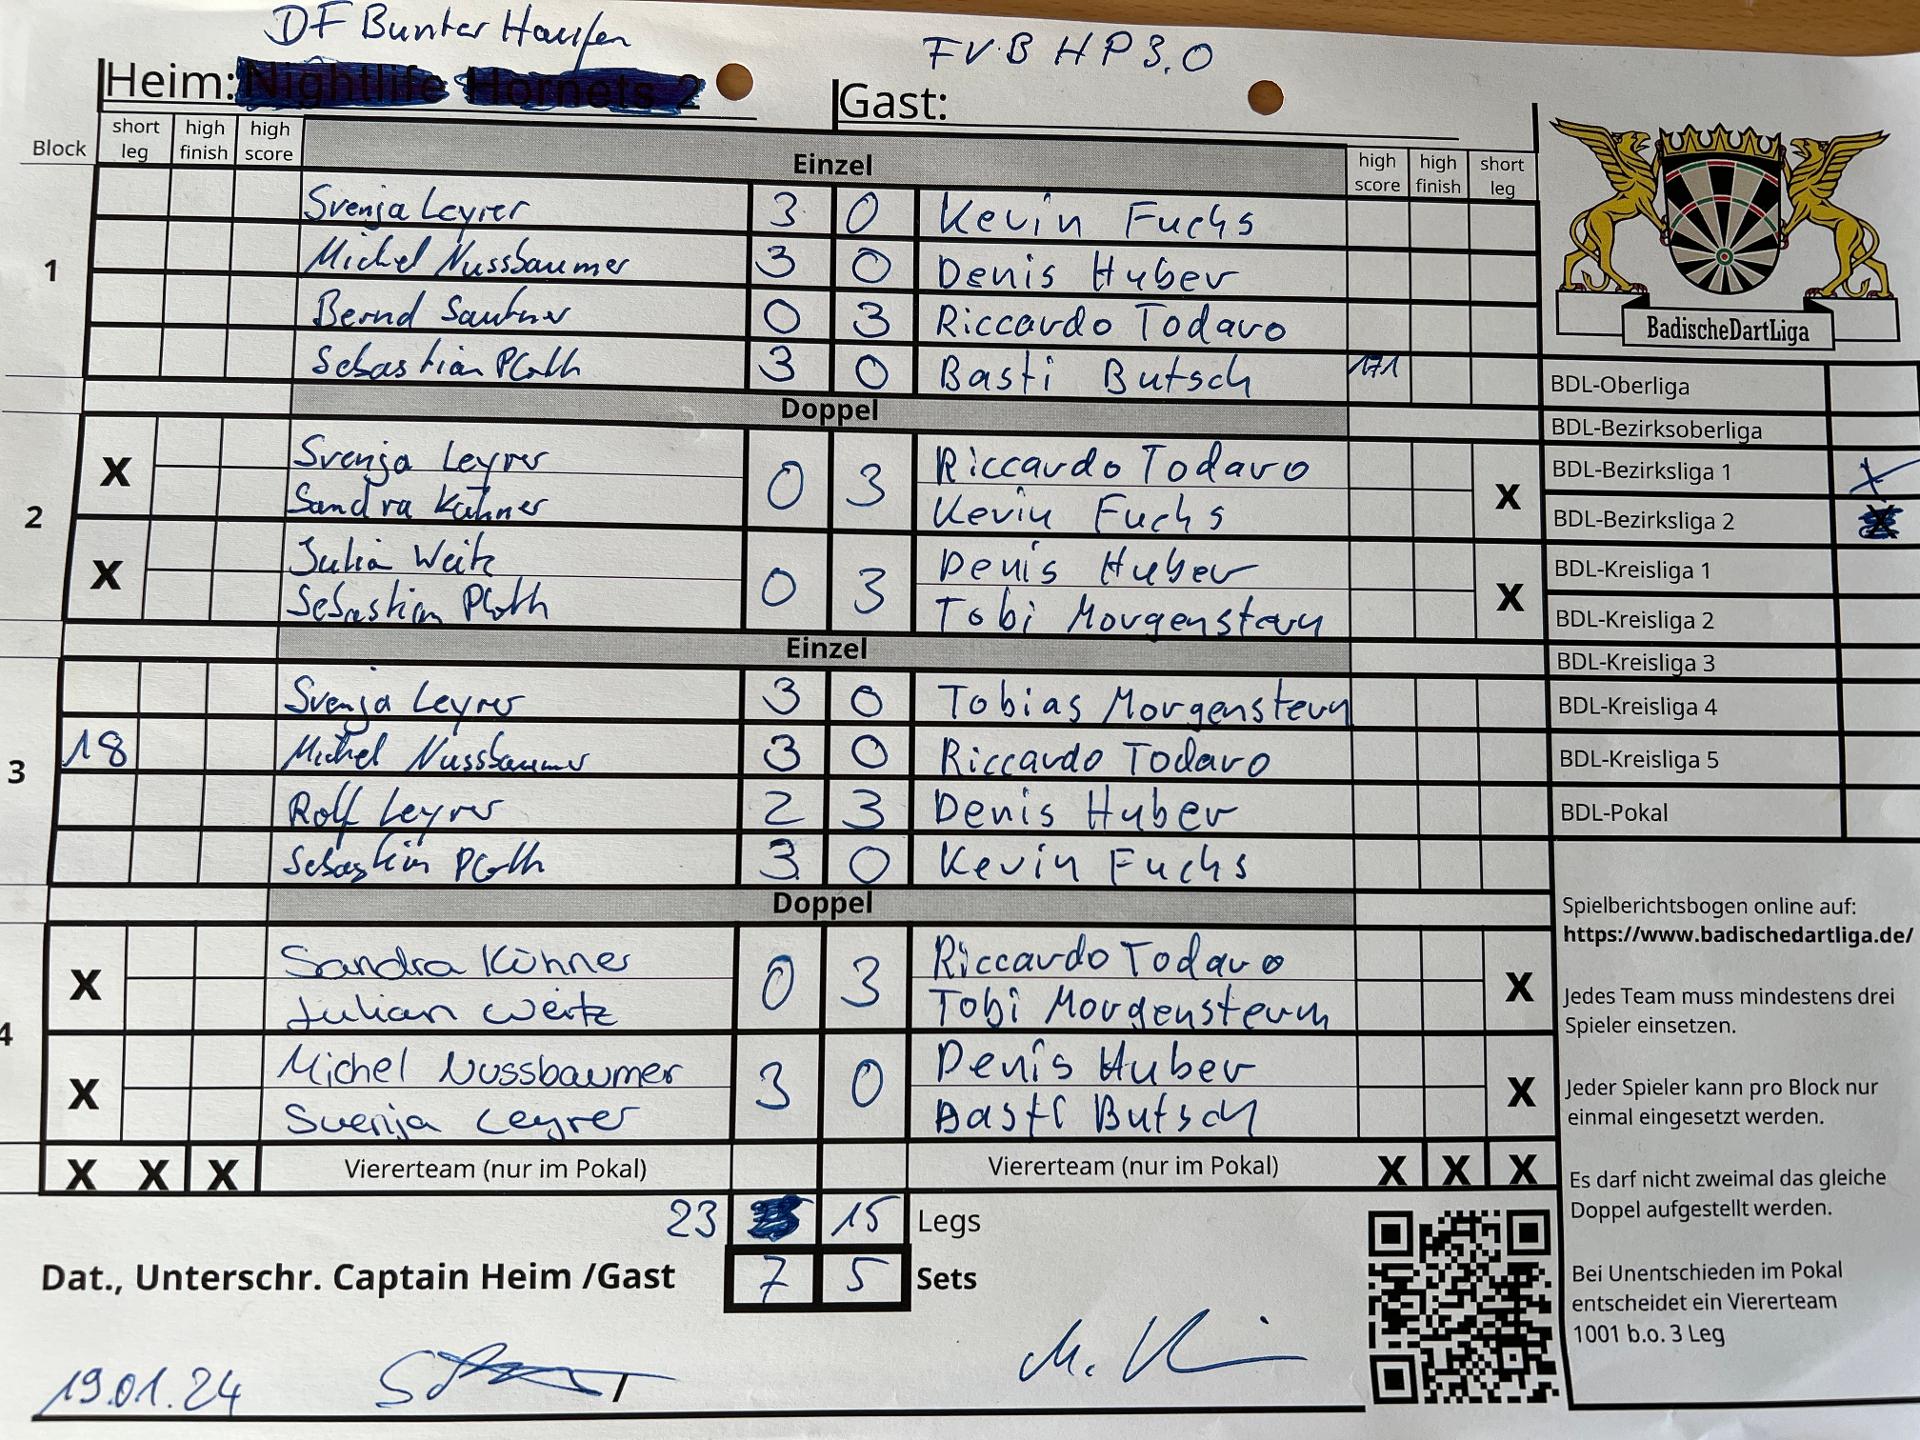 DF Bunter Haufen FVB HP 3.0
Heim: Nightlife Hornets 2 Gast:
Block short leg high finish high score Einzel high score high finish short leg
1
Svenja Leyrer 3 0 Kevin Fuchs
Michel Nussbaumer 3 0 Denis Huber
Bernd 0 3 Riccardo Todavo
Sebastian 3 0 Basti Butsch 171
Doppel
2
X Svenja Leyrer 0 3 Riccardo Todavo X
Sandra Kühner Kevin Fuchs
X Weitz 0 3 Denis Huber X
Sebastian Tobi Morgenstern
Einzel
3
Svenja Leyrer 3 0 Tobias Morgenstern
18 Michel Nussbaumer 3 0 Riccardo Todavo
Rolf Leyrer 2 3 Denis Huber
Sebastian 3 0 Kevin Fuchs
Doppel
4
X Sandra Kühner 0 3 Riccardo Todavo X
Julian Weitz Tobi Morgenstern
X Michel Nussbaumer 3 0 Denis Huber X
Svenja Leyrer Basti Butsch
X X X Viererteam (nur im Pokal) Viererteam (nur im Pokal) X X X
23 15 Legs
Dat., Unterschr. Captain Heim /Gast 7 5 Sets
19.01.24
BadischeDartLiga
BDL-Oberliga
BDL-Bezirksoberliga
BDL-Bezirksliga 1 X
BDL-Bezirksliga 2 X
BDL-Kreisliga 1
BDL-Kreisliga 2
BDL-Kreisliga 3
BDL-Kreisliga 4
BDL-Kreisliga 5
BDL-Pokal
Spielberichtsbogen online auf:
https://www.badischedartliga.de/
Jedes Team muss mindestens drei
Spieler einsetzen.
Jeder Spieler kann pro Block nur
einmal eingesetzt werden.
Es darf nicht zweimal das gleiche
Doppel aufgestellt werden.
Bei Unentschieden im Pokal
entscheidet ein Viererteam
1001 b.o. 3 Leg